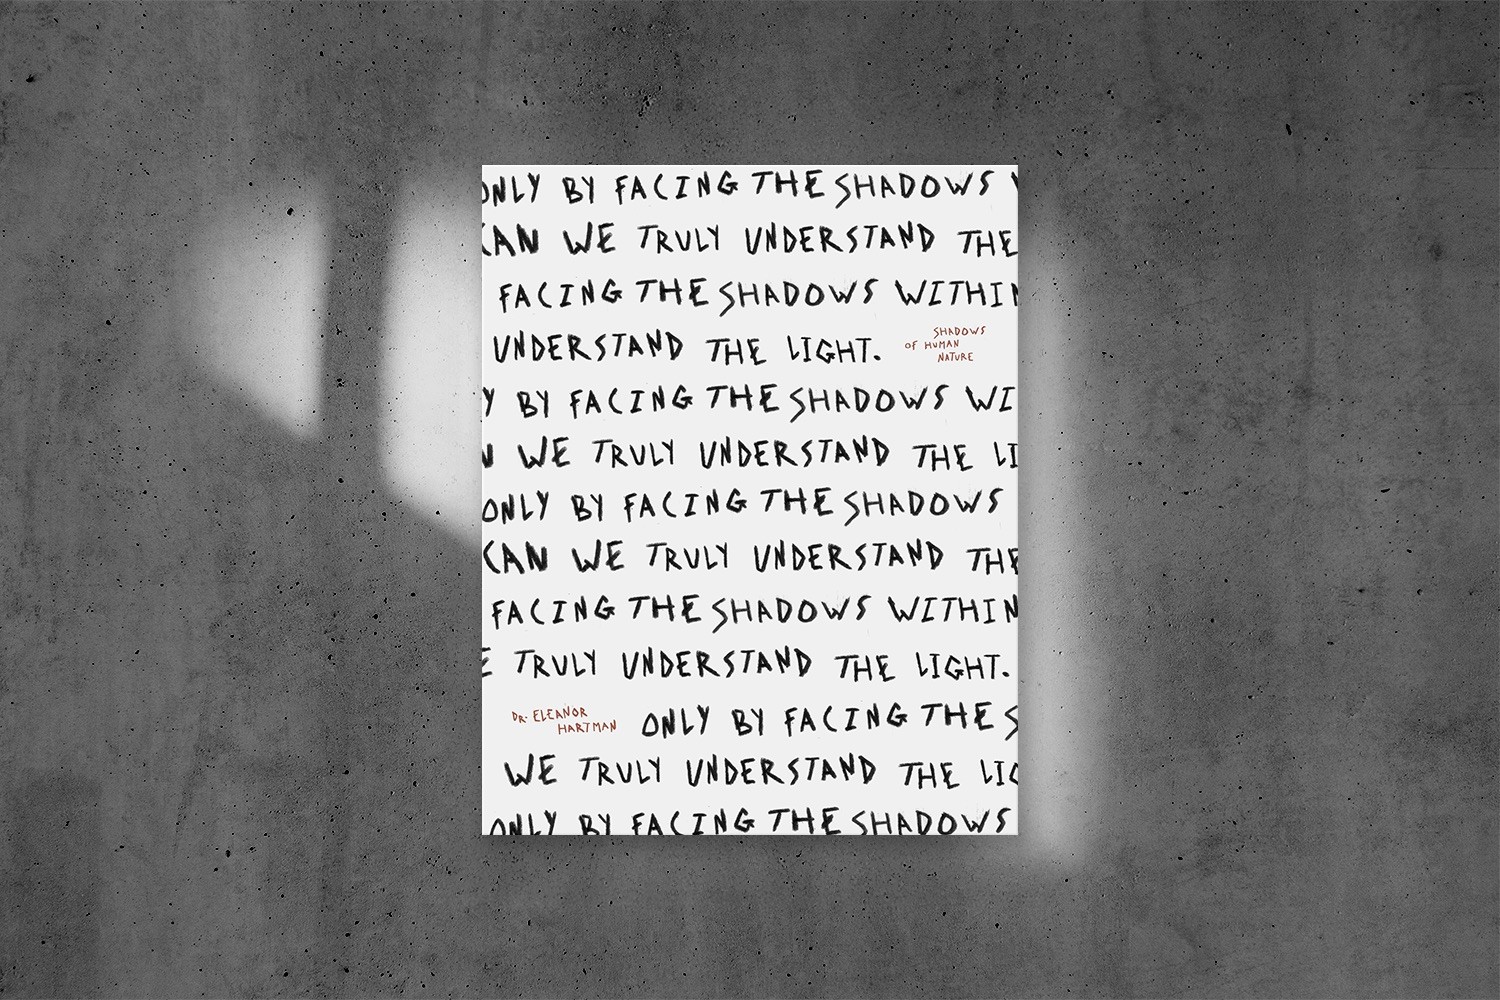 ONLY BY FACING THE SHADOWS
CAN WE TRULY UNDERSTAND THE
FACING THE SHADOWS WITHIN
UNDERSTAND THE LIGHT.
SHADOWS
OF HUMAN
NATURE
Y BY FACING THE SHADOWS WI
N WE TRULY UNDERSTAND THE LI
ONLY BY FACING THE SHADOWS
CAN WE TRULY UNDERSTAND THE
FACING THE SHADOWS WITHIN
E TRULY UNDERSTAND THE LIGHT.
DR. ELEANOR
HARTMAN
ONLY BY FACING THE S
WE TRULY UNDERSTAND THE LIG
ONLY BY FACING THE SHADOWS